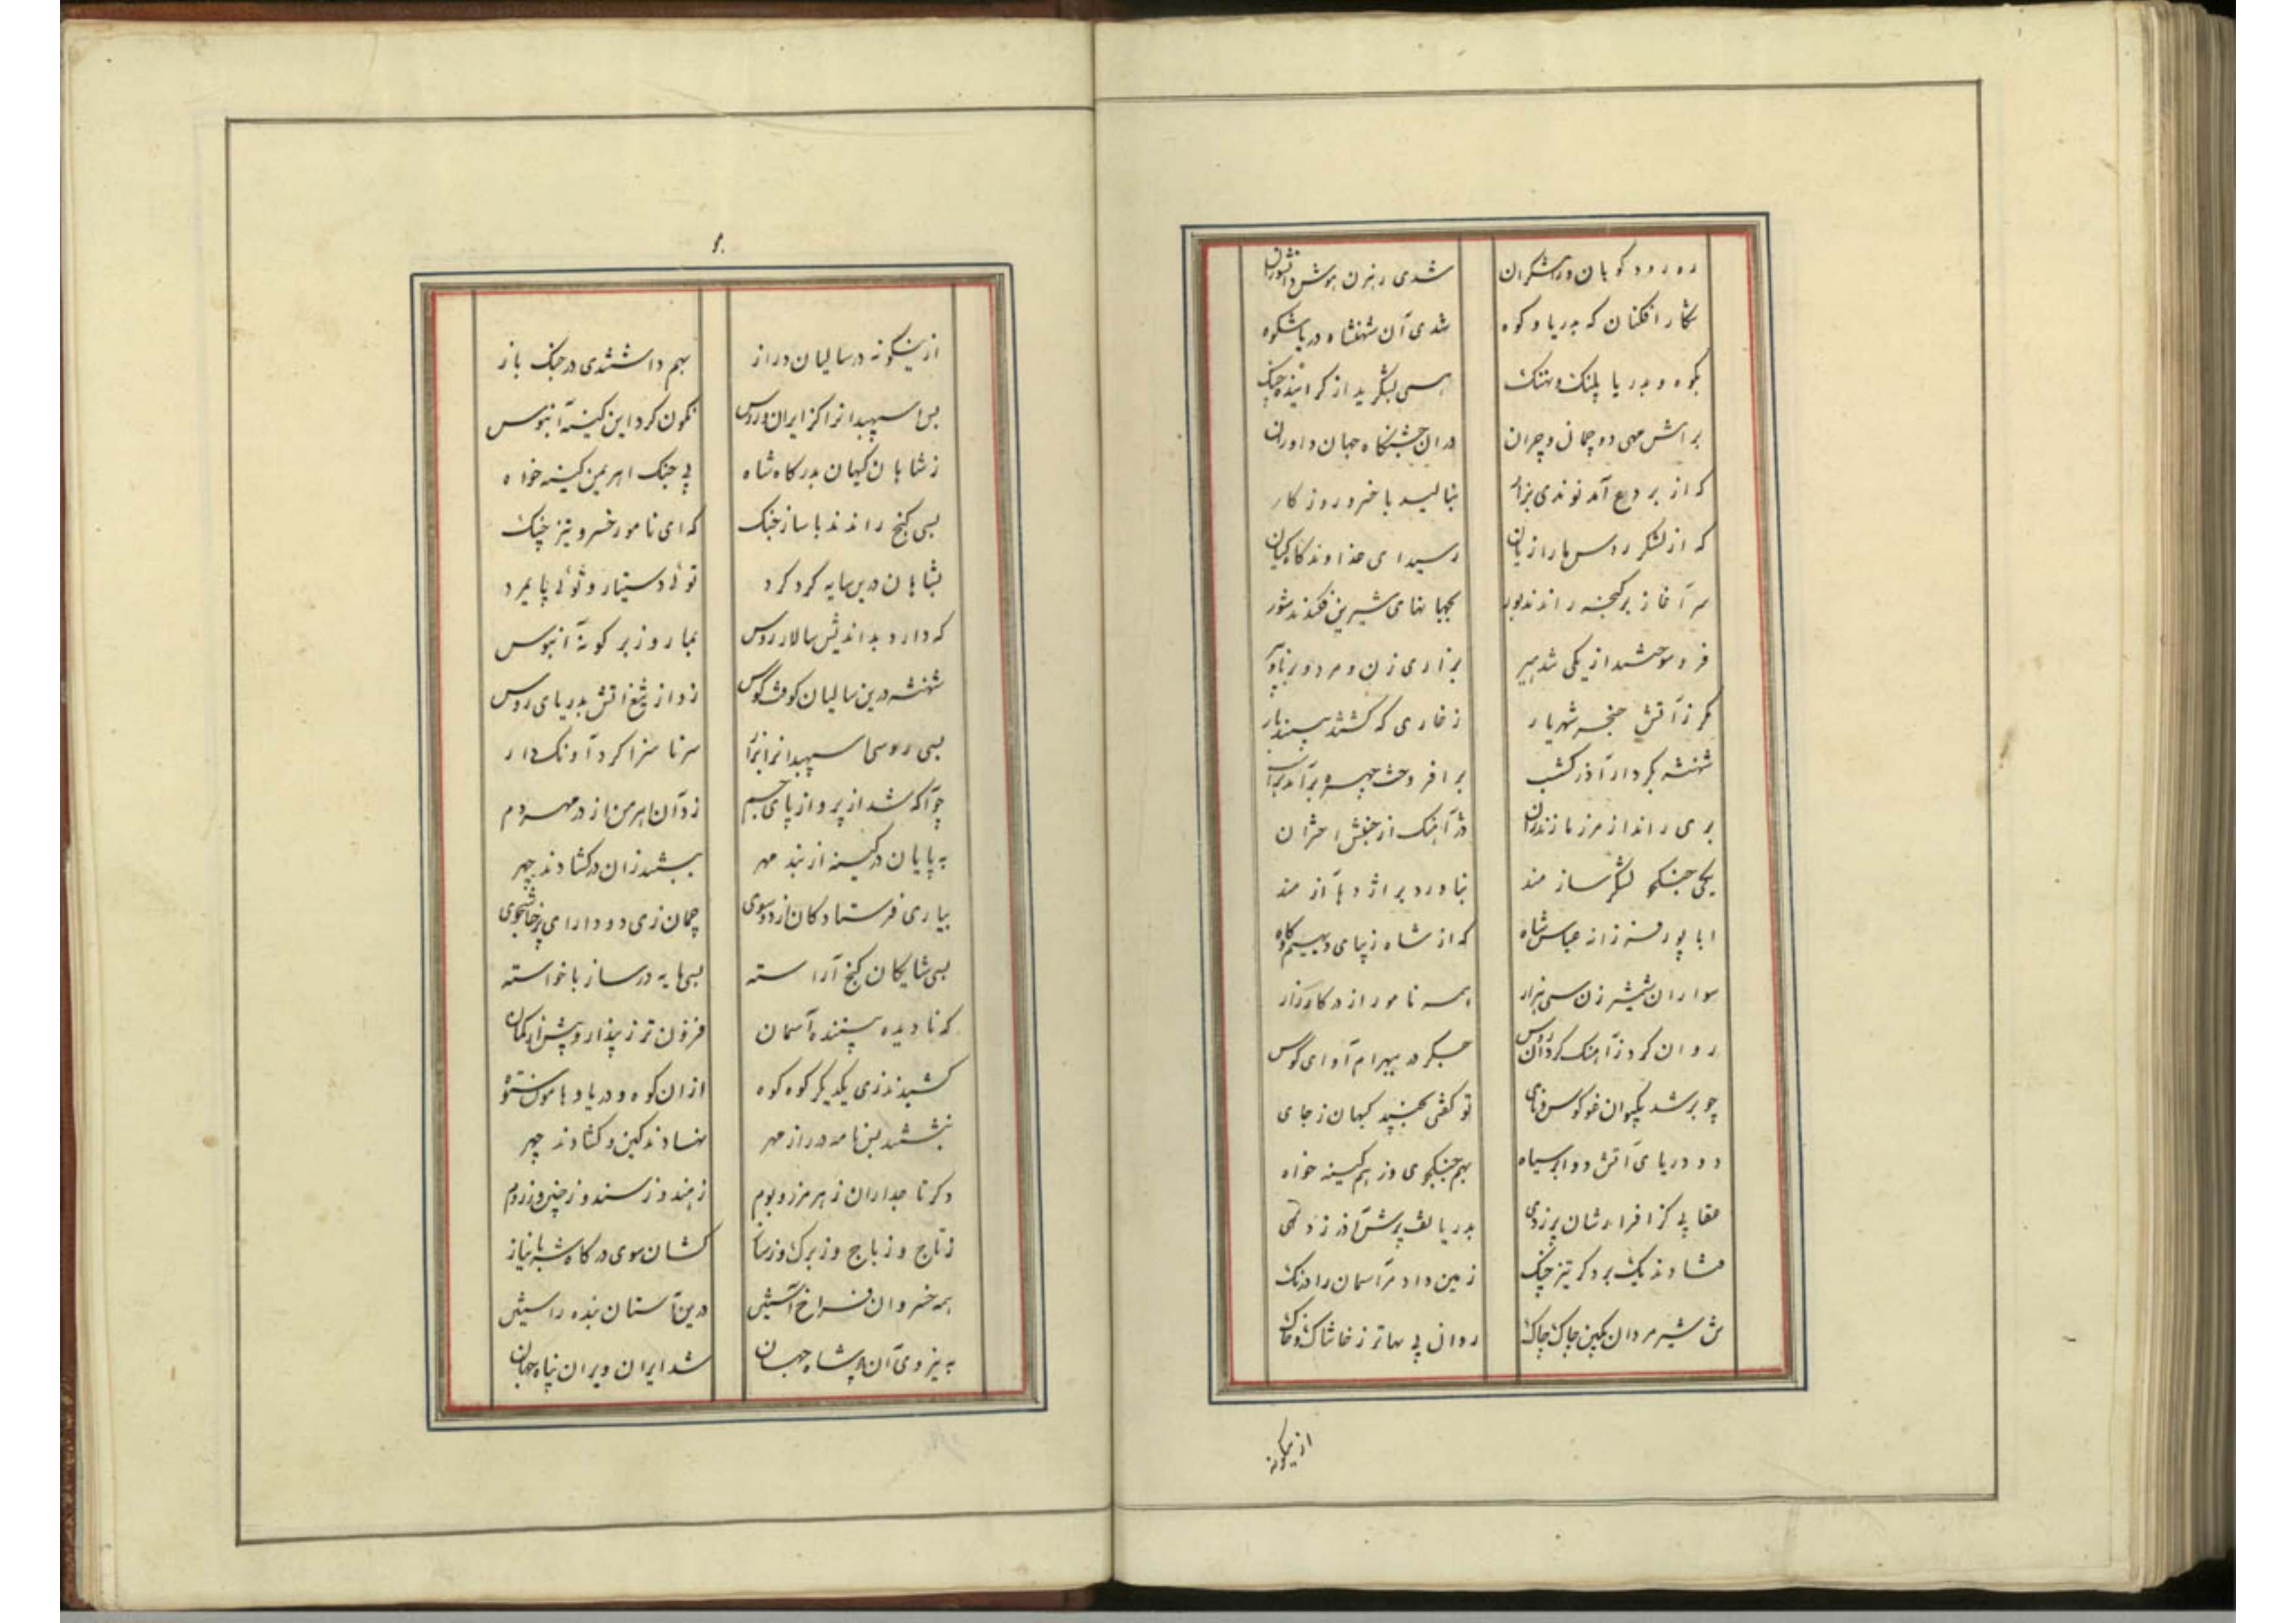 ره رود کوبان و رامشکران شدی رهزن هوش دانشوران
شکار افکنان که بدریا و کوه شدی آن شهنشاه دریا شکوه
بکوه و بدریا پلنک و نهنک بسی بشکرید از کراینده چنک
برامش مهی دو چمان و چران در آن جشنکاه جهان داوران
که از بردع آمد نوندی بزار بنالید با خسرو روزکار
که از لشکر روس ما را زیان رسید ای خداوند کاه کیان
سر آغاز بر کنجه راندند بور بجهانهای شیرین فکندند شور
بزاری زن و مرد و برنا و پیر
مکر ز آتش خنجر شهریار ز خاری که کشتند بینند بار
شهنشه بکردار آذرکشب برافروخت چهره برآمد بر اسب
بری راند از مرز مازندران در آهنک از جنبش اختران
یکی جنکجو لشکر ساز مند بناورد بر اژدها آزمند
ابا پور فرزانه عباس شاه که از شاه زیبای دیهیم و کاه
سواران شمشیر زن سی هزار همه نامور از در کارزار
روان کرد ز آهنک کردان روس جکر در بهرام آوای کوس
چو بر شد بکیوان غو کوس و نای تو کفتی بجنبید کیهان ز جای
دو دریای آتش دو ابر سیاه بهم جنکجوی و ز هم کینه خواه
زمین داد مر آسمان را درنک
تن شیر مردان بکین چاک چاک روان بی بهاتر ز خاشاک و خاک
ازینکونه
ازینکونه در سالیان دراز بهم داشتندی در جنک باز
بس اسپهبدانرا کز ایران و روس نکون کرد این کینه آبنوس
ز شاهان کیهان بدرکاه شاه پی جنک اهریمن کینه خواه
بسی کنج راندند با ساز جنک که ای نامور خسرو تیز چنک
بشاهان درین سایه کرد کرد توئی دستیار و توئی پایمرد
که دارد بداندیش سالار روس بما روز بر کونه آبنوس
شهنشه درین سالیان کوفت کوس زد از تیغ آتش بدریای روس
بسی روسی اسپهبدانرا بزار سر ناسزا کرد آونک دار
چو آکه شد از پرواز پای خم زد آن اهرمن از در مهر دم
به پایان در کینه از بند مهر ببستند زان در کشادند چهر
بیاری فرستادکان از دو سوی چمان زی دو دارای پرخاشجوی
بسی شایکان کنج آراسته بسی مایه در ساز با خواسته
که نادیده بیننده آسمان فزون تر ز پندار و بیش از کمان
کشیدند زی یکدیکر کوه کوه از آن کوه و دریا و هامون ستوه
نبشتند بس نامه در راز مهر نهادند کین و کشادند چهر
دکر تاجداران ز هر مرز و بوم ز هند و ز سند و ز چین و ز روم
ز تاج و ز باج و ز برک و ز ساز کشان سوی درکاه شه با نیاز
همه خسروان فراخ آستین درین آستان بنده راستین
به نیروی آن پادشاه جهان شد ایران ویران پناه جهان